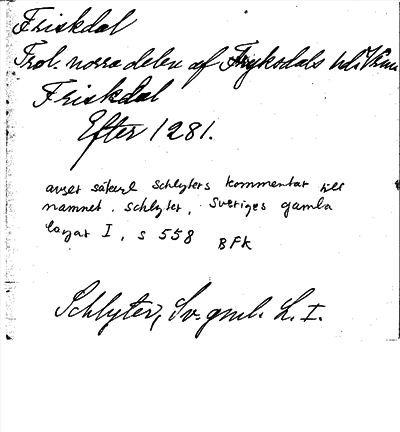 Friskdal
Trol. norra delen af Fryksdals hd i Värm
Friskdal
Efter 1281.
avser säkerl Schlyters kommentar till
namnet. Schlyter, Sveriges gamla
lagar I, s 558 BFK
Schlyter, Sv. gml. L. I.